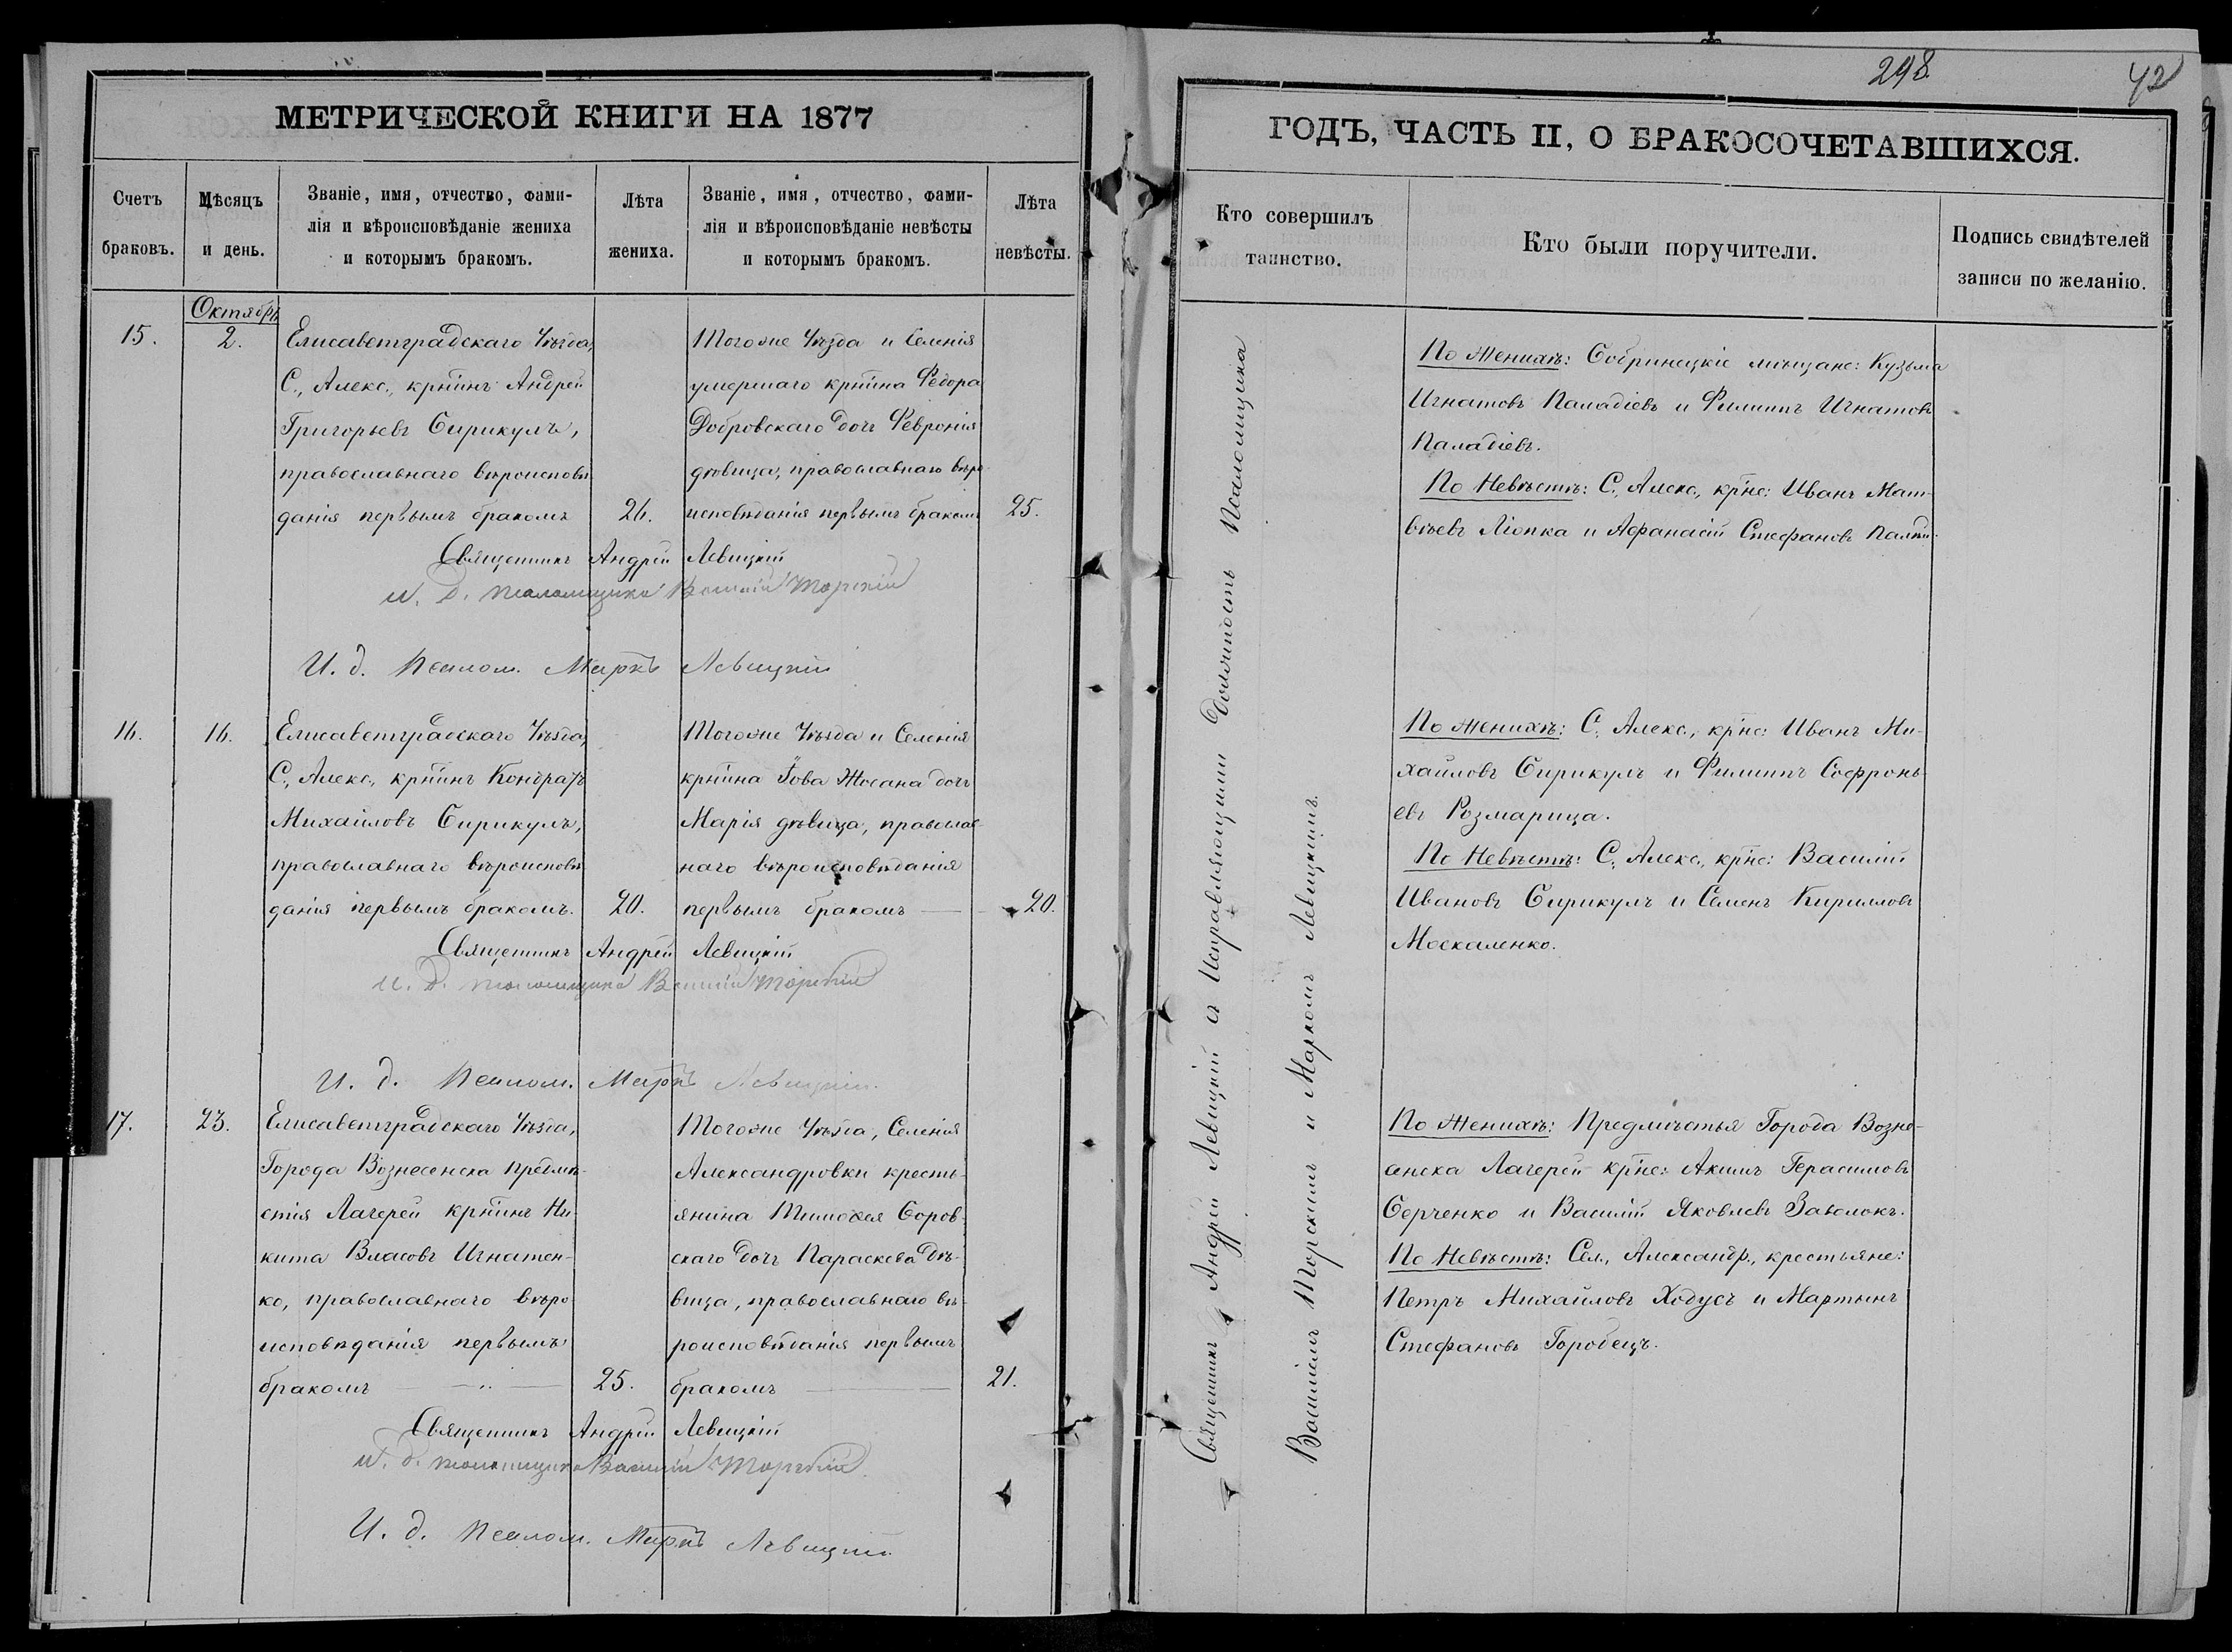 МЕТРИЧЕСКОЙ КНИГИ НА 1877
Счетъ браковъ.
Мѣсяцъ и день.
Званіе, имя, отчество, фами-
лія и вѣроисповѣданіе жениха
и которымъ бракомъ.
Лѣта жениха.
Званіе, имя, отчество, фами-
лія и вѣроисповѣданіе невѣсты
и которымъ бракомъ.
Лѣта невѣсты.
15.
Октября
2.
Елисаветградскаго Уѣзда,
С., Алекс., крнинъ Андрей
Григорьевъ Сирикулъ,
православнаго вѣроисповѣ
данія первымъ бракомъ
26.
Тогоже Уѣзда и Селенія
умершаго крнина Федора
Добровскаго дочь Февронія
дѣвица, православнаго вѣро
исповѣданія первымъ бракомъ
25.
Священникъ Андрей Левицкій
И. д. псаломщика Василій Торскій
И. д. Псалом. Маркъ Левицкій
16.
16.
Елисаветградскаго Уѣзда,
С., Алекс., крнинъ Кондратъ
Михайловъ Сирикулъ,
православнаго вѣроисповѣ
данія первымъ бракомъ.
20.
Тогоже Уѣзда и Селенія
крнина Іова Жосана дочь
Марія дѣвица, православ-
наго вѣроисповѣданія
первымъ бракомъ —
20.
Священникъ Андрей Левицкій
И. д. псаломщика Василій Торскій
И. д. Псалом. Маркъ Левицкій.
17.
23.
Елисаветградскаго Уѣзда,
Города Вознесенска предмѣ-
стія Лагерей крнинъ Ни-
кита Власовъ Игнатен-
ко, православнаго вѣро
исповѣданія первымъ
бракомъ
25.
Тогоже Уѣзда, Селенія
Александровки кресть-
янина Тимофея Боров-
скаго дочь Параскева дѣ-
вица, православнаго вѣ-
роисповѣданія первымъ
бракомъ
21.
Священникъ Андрей Левицкій
И. д. псаломщика Василій Торскій.
И. д. Псалом. Маркъ Левицкій.
298
42
ГОДЪ, ЧАСТЬ II, О БРАКОСОЧЕТАВШИХСЯ.
Кто совершилъ
таинство.
Кто были поручители.
Подпись свидѣтелей
записи по желанію.
Священникъ Андрей Левицкій съ Исправляющими Должность Псаломщика
Василіемъ Торскимъ и Маркомъ Левицкимъ.
По Женихѣ: Бобринецкіе мѣщане: Кузьма
Игнатовъ Паладіевъ и Филиппъ Игнатовъ
Паладіевъ.
По Невѣстѣ: С., Алекс., крне: Иванъ Мат-
вѣевъ Ліопка и Афанасій Стефановъ
По Женихѣ: С., Алекс., крне: Иванъ Ми-
хайловъ Сирикулъ и Филиппъ Софронь
евъ Розмарица.
По Невѣстѣ: С., Алекс., крне: Василій
Ивановъ Сирикулъ и Семенъ Кирилловъ
Москаленко.
По Женихѣ: Предмѣстья Города Возне-
сенска Лагерей крне: Акимъ Герасимовъ
Серченко и Василій Яковлевъ Заволокъ.
По Невѣстѣ: Сел., Александр., крестьяне:
Петръ Михайловъ Ходусъ и Мартынъ
Стефановъ Горобецъ.